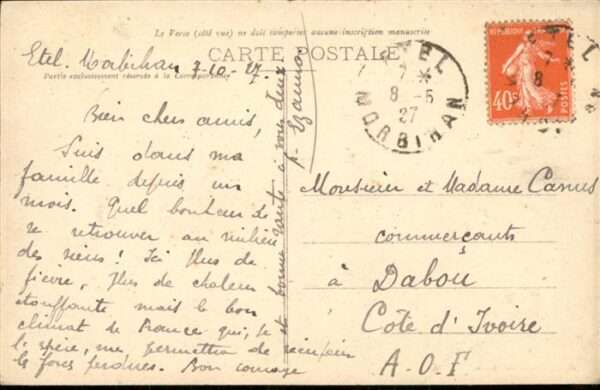 Le Verso (côté vu) ne doit comporter aucune inscription manuscrite
CARTE POSTALE
Partie exclusivement réservée à la Correspondance
Etel. Morbihan 7-10-27.
Bien chers amis,
Suis dans ma
famille depuis un
mois. Quel bonheur de
se retrouver au milieu
des siens! Ici plus de
fièvre, plus de chaleur
étouffante mais le bon
climat de France qui, je
l'espère, me permettra de
les forces perdues. Bon courage
et bonne santé à vous deux.
ETEL
8-5
27
MORBIHAN
REPUBLIQUE FRANÇAISE
40c
POSTES
ETEL
8
Monsieur et Madame Camus
commerçants
à Dabou
Côte d'Ivoire
A.O.F